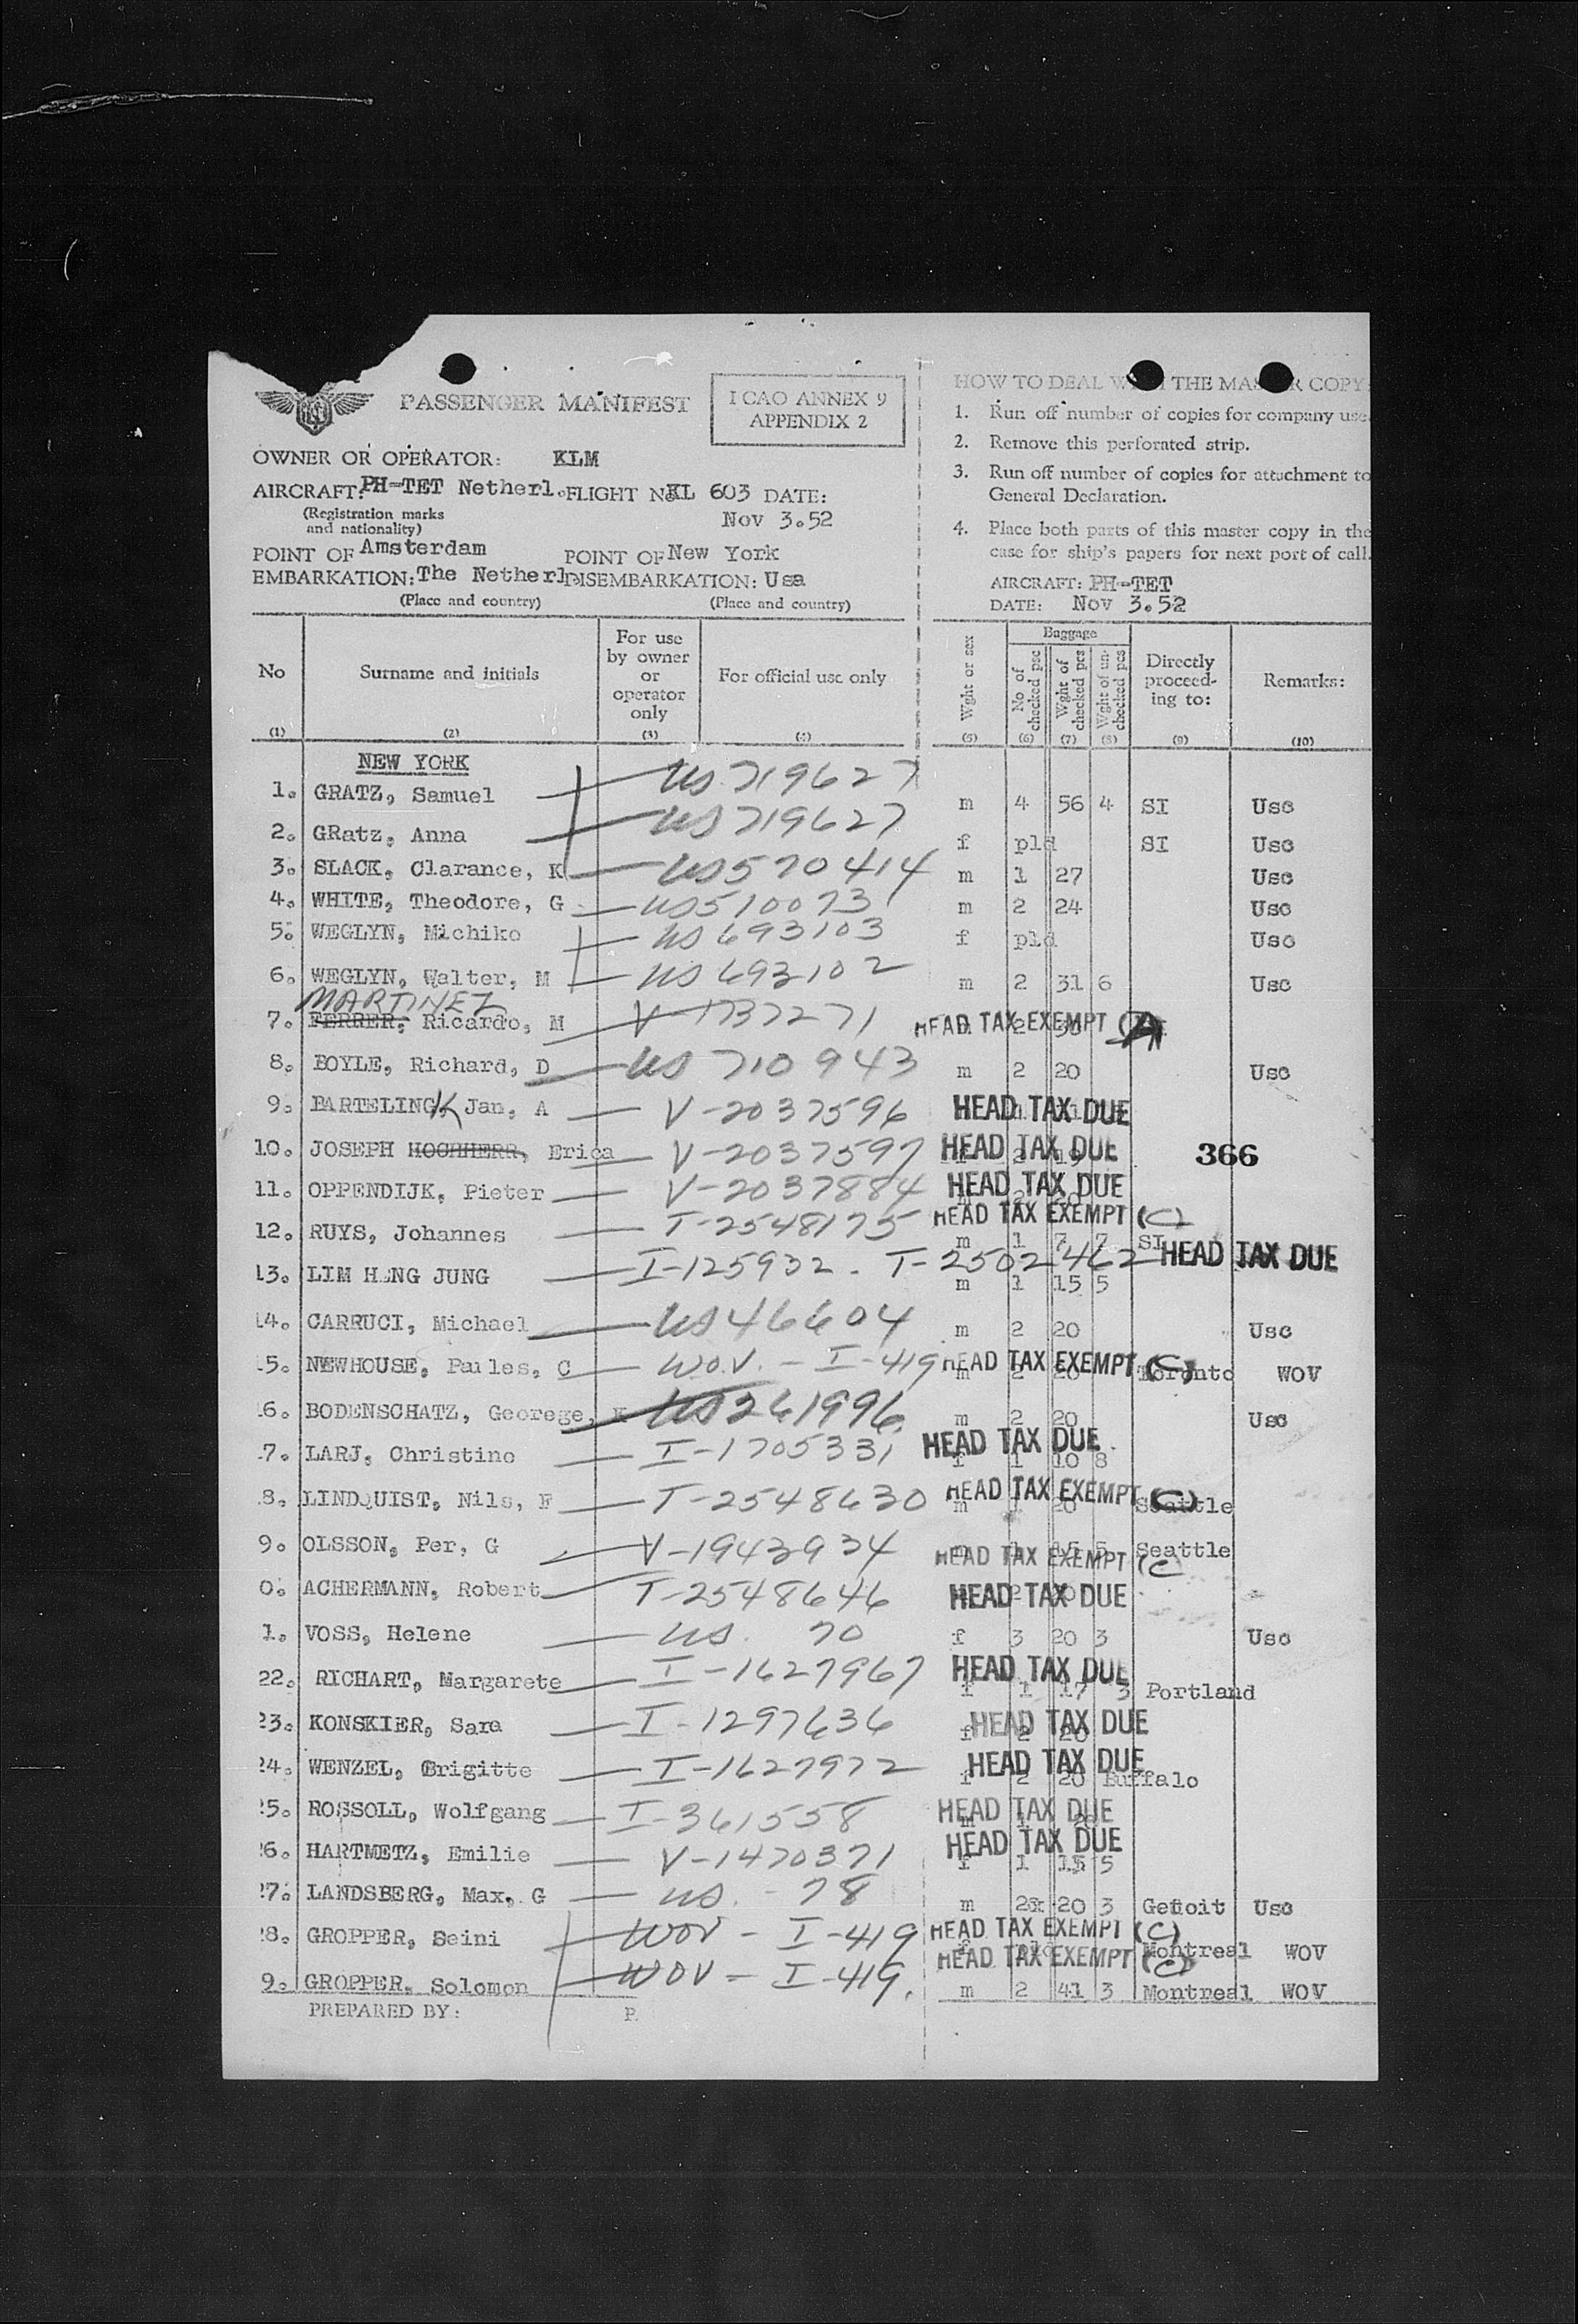 PASSENGER MANIFEST
I CAO ANNEX 9
APPENDIX 2
OWNER OR OPERATOR: KLM
AIRCRAFT: PH-TET Netherl. FLIGHT No KL 603 DATE:
(Registration marks
and nationality)
Nov 3.52
POINT OF Amsterdam POINT OF New York
EMBARKATION: The Netherl. DISEMBARKATION: Usa
(Place and country) (Place and country)
HOW TO DEAL THE MASTER COPY
1. Run off number of copies for company use
2. Remove this perforated strip.
3. Run off number of copies for attachment to
General Declaration.
4. Place both parts of this master copy in the
case for ship's papers for next port of call.
AIRCRAFT: PH-TET
DATE: Nov 3.52
No
(1)
Surname and initials
(2)
For use
by owner
or
operator
only
(3)
For official use only
(4)
Wght or sex
(5)
Baggage
No of
checked psc
(6)
Wght of
checked pcs
(7)
Wght of un-
checked pcs
(8)
Directly
proceed-
ing to:
(9)
Remarks:
(10)
NEW YORK
1. GRATZ, Samuel US 719627 m 4 56 4 SI Usc
2. GRatz, Anna US 719627 f pld SI Usc
3. SLACK, Clarance, K US 570414 m 1 27 Usc
4. WHITE, Theodore, G US 510073 m 2 24 Usc
5. WEGLYN, Michiko US 693103 f pld Usc
6. WEGLYN, Walter, M US 693102 m 2 31 6 Usc
MARTINEZ
7. FERRER, Ricardo, M V-1737271 HEAD TAX EXEMPT (A) 2 30
8. BOYLE, Richard, D US 710943 m 2 20 Usc
9. BARTELINGK, Jan, A V-2037596 HEAD TAX DUE
10. JOSEPH HOCHHERR, Erica V-2037597 HEAD TAX DUE 2 19 366
11. OPPENDIJK, Pieter V-2037884 HEAD TAX DUE m 2 20
12. RUYS, Johannes T-2548175 HEAD TAX EXEMPT (C) m 1 7 7 SI
13. LIM HENG JUNG I-125932 - T-2502462 HEAD TAX DUE m 1 15 5
14. CARRUCI, Michael US 46604 m 2 20 Usc
15. NEWHOUSE, Paules, C W.O.V. - I-419 HEAD TAX EXEMPT (C) m 2 20 Toronto WOV
16. BODENSCHATZ, Georege, K US 261996 m 2 20 Usc
17. LARJ, Christine I-1705331 HEAD TAX DUE f 1 10 8
18. LINDQUIST, Nils, F T-2548630 HEAD TAX EXEMPT (C) m 1 20 Seattle
9. OLSSON, Per, G V-1943934 HEAD TAX EXEMPT (C) m 1 15 5 Seattle
0. ACHERMANN, Robert T-2548646 HEAD TAX DUE 2 20
1. VOSS, Helene US. 70 f 3 20 3 Usc
22. RICHART, Margarete I-1627967 HEAD TAX DUE f 1 17 3 Portland
23. KONSKIER, Sara I-1297636 HEAD TAX DUE f 2 20
24. WENZEL, Brigitte I-1627972 HEAD TAX DUE f 2 20 Buffalo
25. ROSSOLL, Wolfgang I-361558 HEAD TAX DUE m 1 20
26. HARTMETZ, Emilie V-1470371 HEAD TAX DUE f 1 15 5
27. LANDSBERG, Max, G US. - 78 m 2x 20 3 Getroit Usc
28. GROPPER, Seini WOV - I-419 HEAD TAX EXEMPT (C) f pld Montreal WOV
9. GROPPER, Solomon WOV - I-419. HEAD TAX EXEMPT (C) m 2 41 3 Montreal WOV
PREPARED BY: P.